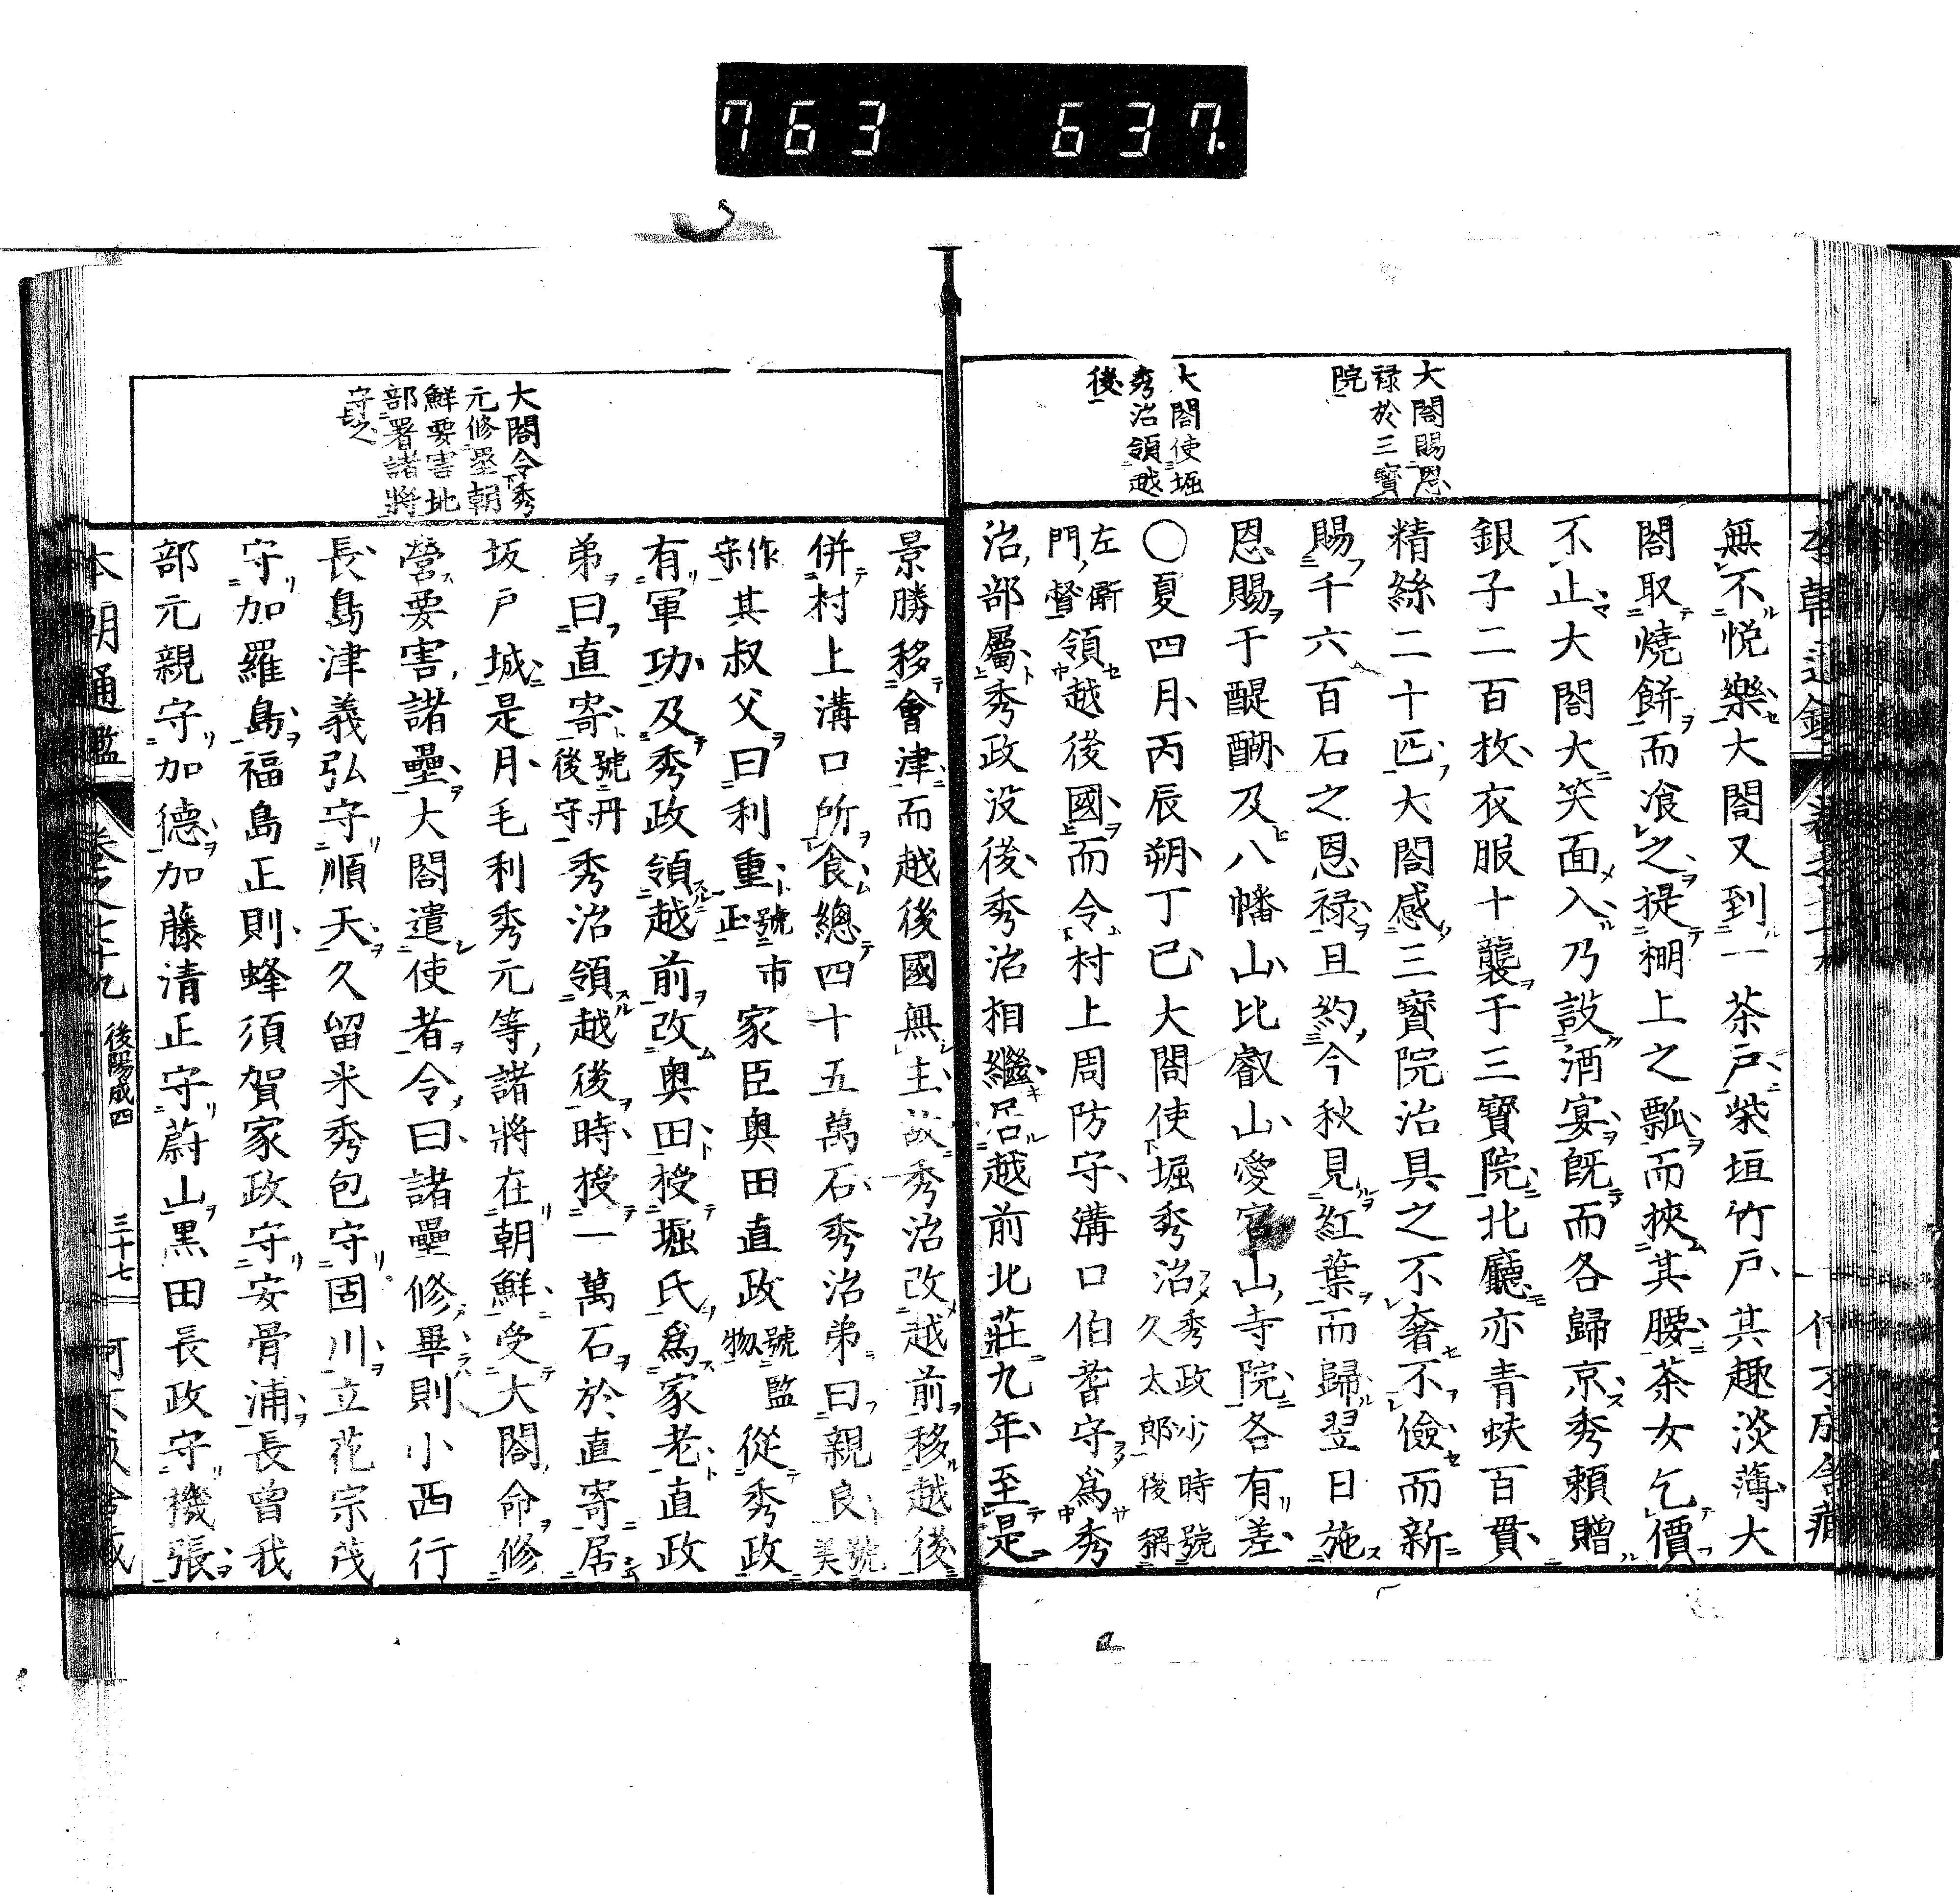 763 637.
大閤賜恩
禄於三寳
院
大閤使堀
秀治領越
後
無不悦樂大閤又到一茶戸柴垣竹戸其趣淡薄大
閤取燒餅而飡之提棚上之瓢而挾其腰茶女乞價
不止大閤大笑面入乃設酒宴既而各歸京秀頼贈
銀子二百枚衣服十襲于三寳院北廳亦青蚨百貫
精絲二十匹大閤感三寳院治具之不奢不儉而新
賜千六百石之恩禄且約今秋見紅葉而歸翌日施
恩賜于醍醐及八幡山比叡山愛宕山寺院各有差
〇夏四月丙辰朔丁巳大閤使堀秀治秀政少時號久太郎後稱
左衛門督領越後國而令村上周防守溝口伯耆守爲秀
治部屬秀政没後秀治相繼居越前北莊九年至是
大閤令秀
元修壘朝
鮮要害地
部署諸將
守之
景勝移會津而越後國無主故秀治改越前移越後
併村上溝口所食總四十五萬石秀治弟曰親良號美
作守其叔父曰利重號市正家臣奥田直政號監物從秀政
有軍功及秀政領越前改奥田授堀氏爲家老直政
弟曰直寄號丹後守秀治領越後時授一萬石於直寄居
坂戸城是月毛利秀元等諸將在朝鮮受大閤命修
營要害諸壘大閤遣使者令曰諸壘修畢則小西行
長島津義弘守順天久留米秀包守固川立花宗茂
守加羅島福島正則蜂須賀家政守安骨浦長曽我
部元親守加德加藤清正守蔚山黒田長政守機張
本朝通鑑 卷之七十九 後陽成四 三十七